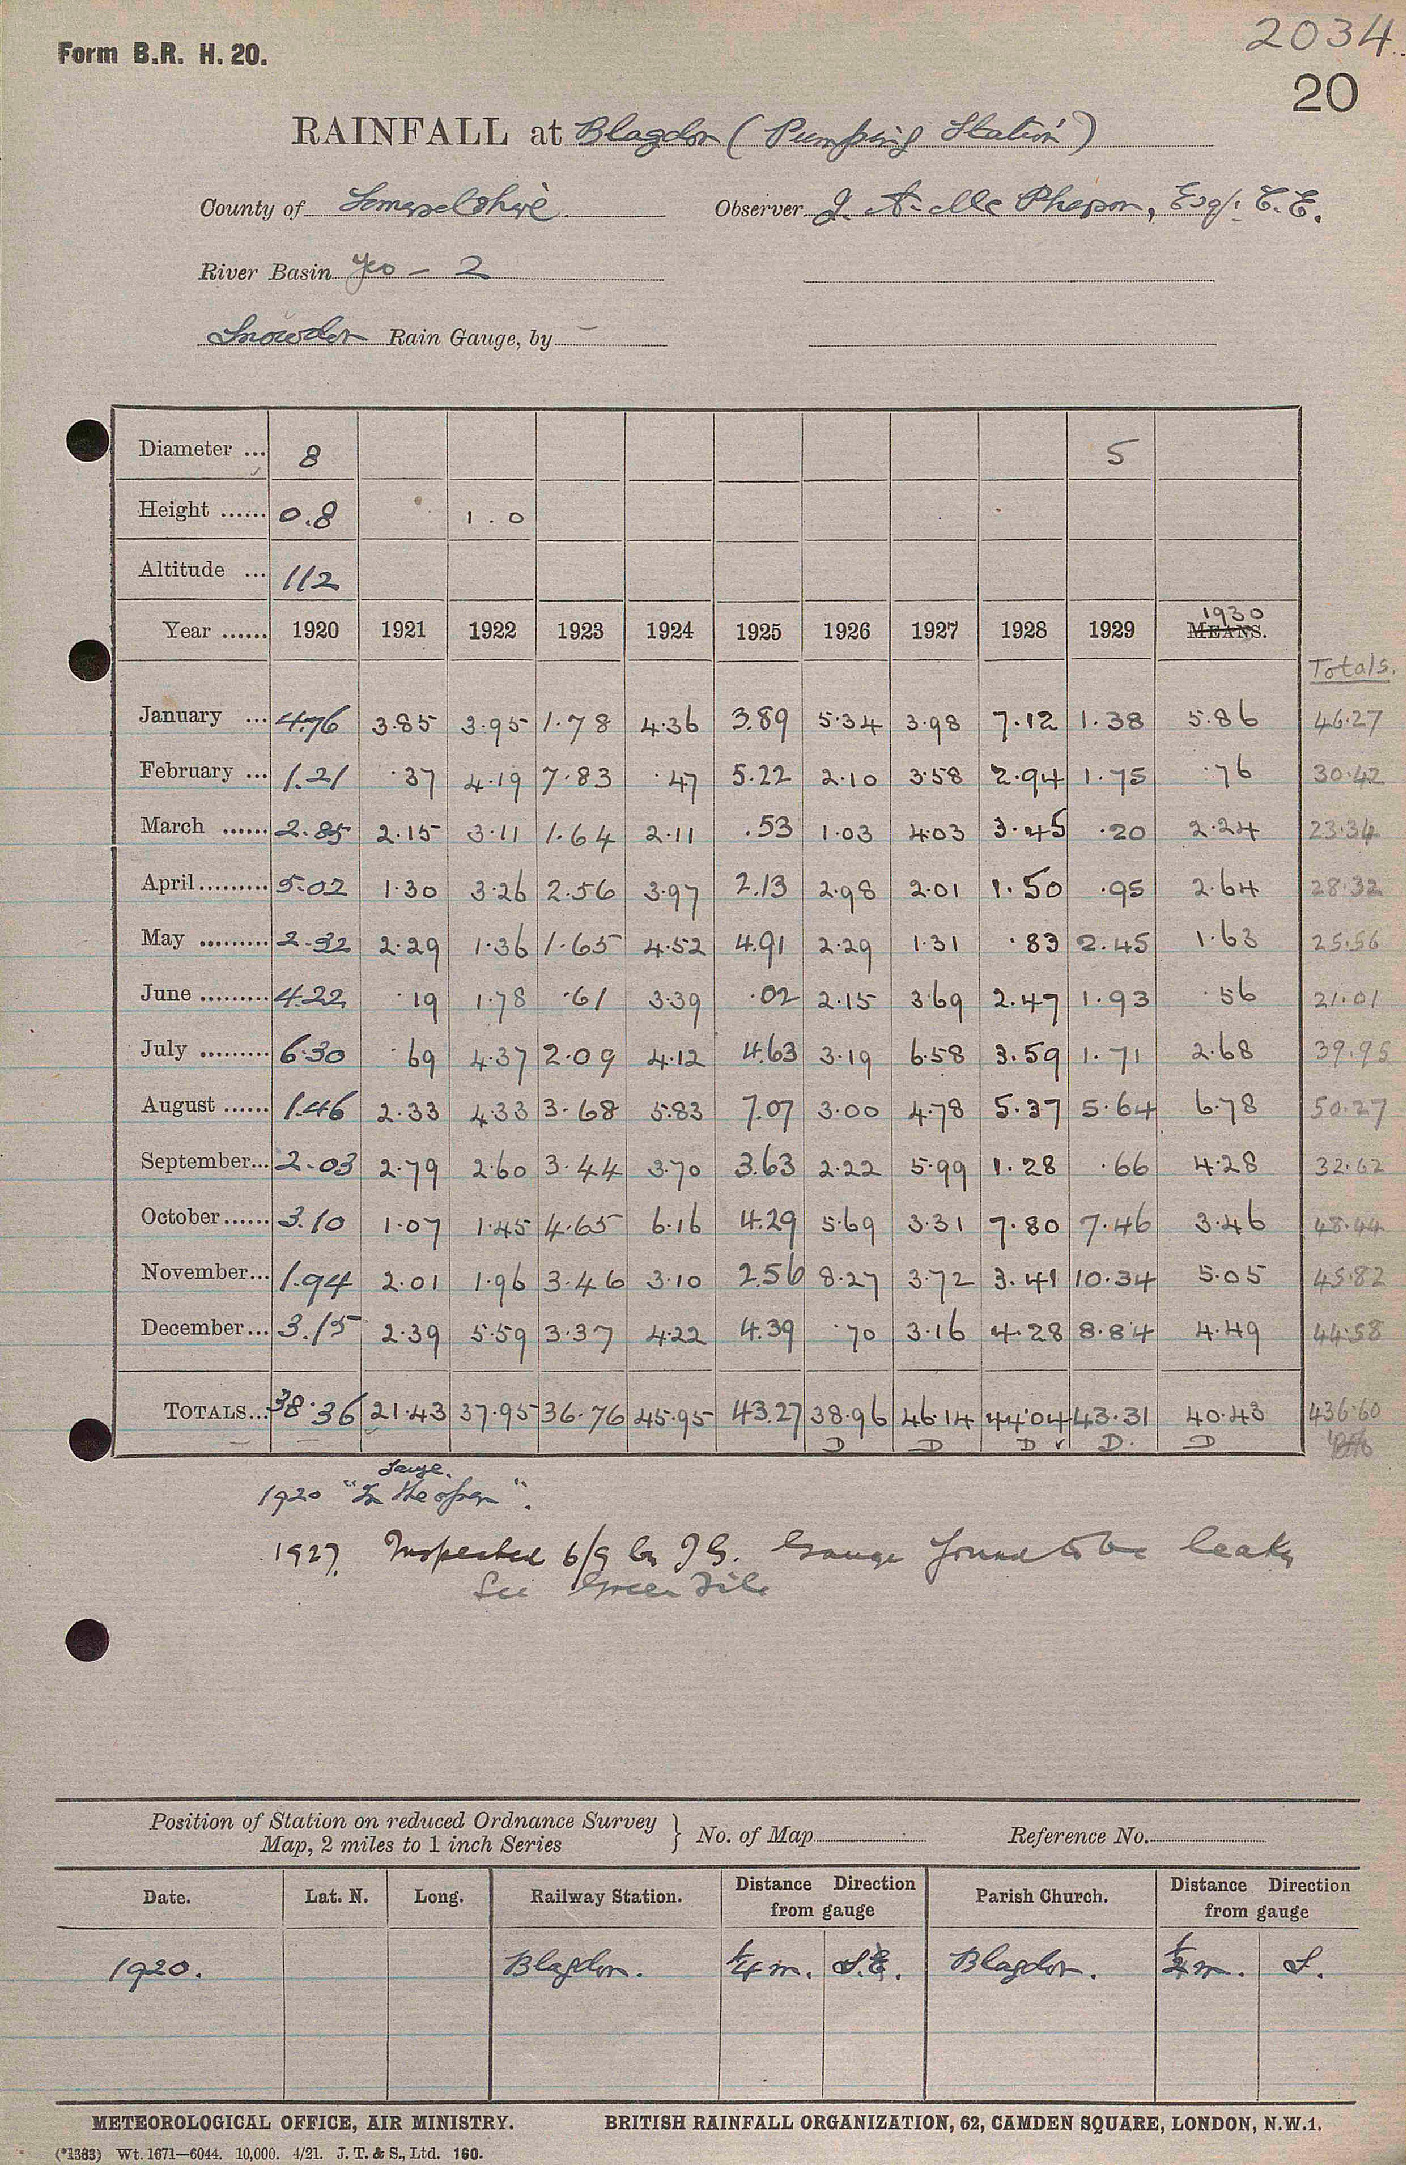 2034
Form B.R. H. 20.
20
RAINFALL at Blagdon (Pumping Station)
County of Somersetshire Observer J. A. McPherson, Esq. C.E.
River Basin Yeo - 2
Snowdon Rain Gauge, by -
Diameter ... 8 5
Height ...... 0.8 1.0
Altitude ... 112
Year ...... 1920 1921 1922 1923 1924 1925 1926 1927 1928 1929 1930 MEANS.
Totals.
January ... 4.76 3.85 3.95 1.78 4.36 3.89 5.34 3.98 7.12 1.38 5.86 46.27
February ... 1.21 .37 4.19 7.83 .47 5.22 2.10 3.58 2.94 1.75 .76 30.42
March ...... 2.85 2.15 3.11 1.64 2.11 .53 1.03 4.03 3.45 .20 2.24 23.34
April ......... 5.02 1.30 3.26 2.56 3.97 2.13 2.98 2.01 1.50 .95 2.64 28.32
May ......... 2.32 2.29 1.36 1.65 4.52 4.91 2.29 1.31 .83 2.45 1.63 25.56
June ......... 4.22 .19 1.78 .61 3.39 .02 2.15 3.69 2.47 1.93 .56 21.01
July ......... 6.30 .69 4.37 2.09 4.12 4.63 3.19 6.58 3.59 1.71 2.68 39.95
August ...... 1.46 2.33 4.33 3.68 5.83 7.07 3.00 4.78 5.37 5.64 6.78 50.27
September... 2.03 2.79 2.60 3.44 3.70 3.63 2.22 5.99 1.28 .66 4.28 32.62
October...... 3.10 1.07 1.45 4.65 6.16 4.29 5.69 3.31 7.80 7.46 3.46 48.44
November... 1.94 2.01 1.96 3.46 3.10 2.56 8.27 3.72 3.41 10.34 5.05 45.82
December... 3.15 2.39 5.59 3.37 4.22 4.39 .70 3.16 4.28 8.84 4.49 44.58
TOTALS... 38.36 21.43 37.95 36.76 45.95 43.27 38.96 46.14 44.04 43.31 40.43 436.60
D D D D. D
Gauge.
1920 "In the open".
1927. Inspected 6/9 by J.G. Gauge found to be leaky
See Green File
Position of Station on reduced Ordnance Survey
Map, 2 miles to 1 inch Series } No. of Map Reference No.
Date. Lat. N. Long. Railway Station. Distance Direction from gauge Parish Church. Distance Direction from gauge
1920. Blagdon. 1/4 m. S.E. Blagdon. m. S.
METEOROLOGICAL OFFICE, AIR MINISTRY. BRITISH RAINFALL ORGANIZATION, 62, CAMDEN SQUARE, LONDON, N.W.1.
(*1383) Wt. 1671—6044. 10,000. 4/21. J. T. & S., Ltd. 160.